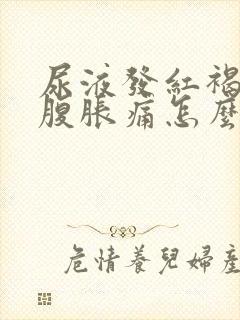 尿液發紅褐
腹脹痛怎麼
危情養兒婦產